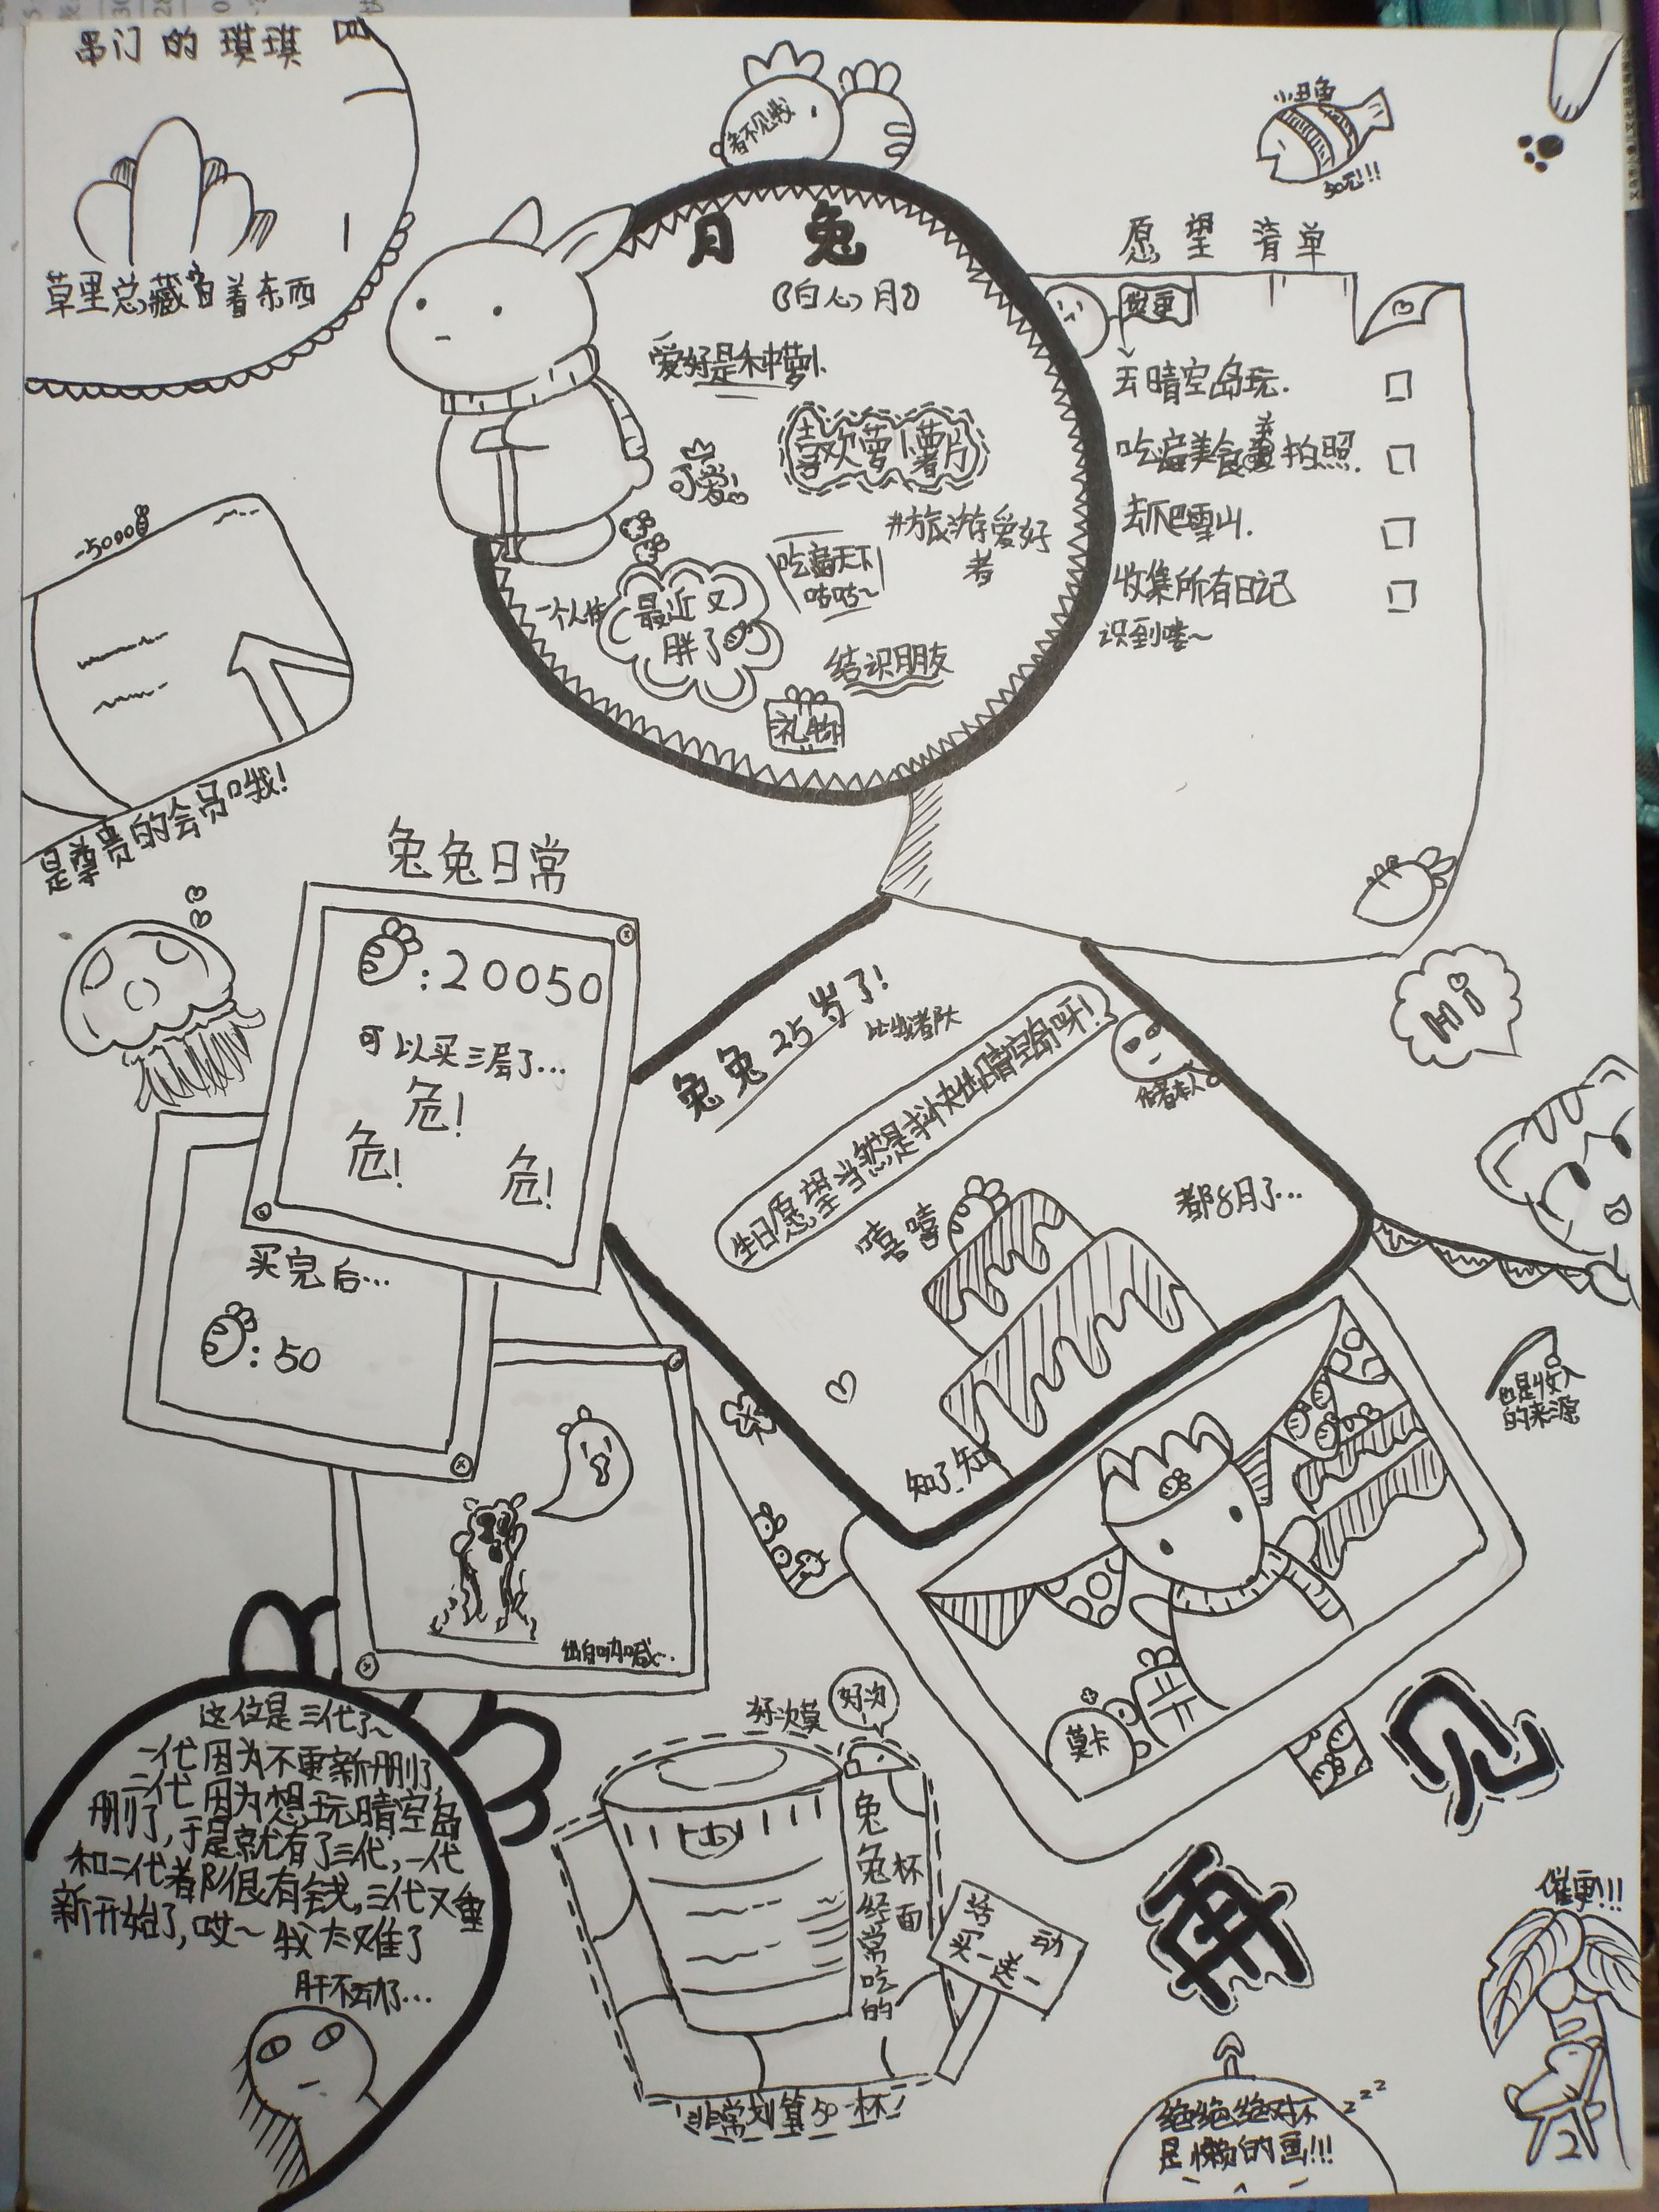 串门的琪琪
草里总藏着东西
看不见我
小丑鱼
50元!!!
月兔
(白心月)
爱好是种萝卜.
可爱!
喜欢萝卜薯片
#旅游爱好
者
吃遍天下
咕咕~
一个人住
最近又
胖了
结识朋友
礼物
愿望清单
催更
去晴空岛玩.
吃遍美食并拍照.
去爬雪山.
收集所有日记
识到喽~
-5000
是尊贵的会员哦!
兔兔日常
:20050
可以买三层了...
危!
危!
危!
买完后...
:50
兔兔25岁了!
生日愿望当然是求快出晴空岛呀!
作者本人
嘻嘻
都8月了...
知了.知
Hi
也是收入
的来源
莫卡
这位是三代了~
一代因为不更新删了,
二代因为想玩晴空岛
删了,于是就有了三代,一代
和二代都很有钱,三代又重
新开始了,哎~我太难了
肝不动了...
好次莫
好次
兔兔经常吃的
杯面
活动
买一送一
非常划算50一杯!
再见
催更!!!
zzz
绝绝绝对不
是懒的画!!!